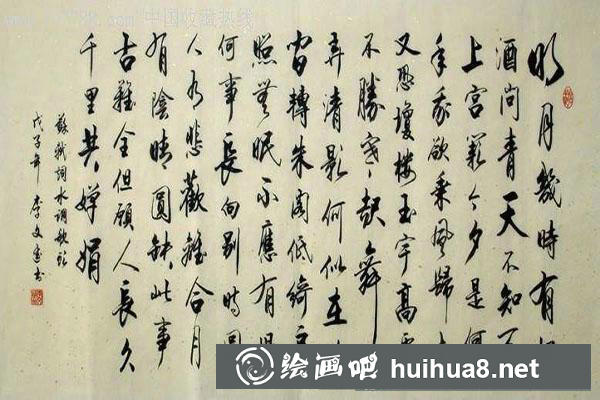 中国收藏热线
明月幾時有
酒問青天不知
上宮闕今夕是何
年我欲乘風歸
又恐瓊樓玉宇高處
不勝寒起舞
弄清影何似在
間轉朱閣低綺戶
照無眠不應有恨
何事長向別時圓
人有悲歡離合月
有陰晴圓缺此事
古難全但願人長久
千里共嬋娟
蘇軾詞水調歌頭
戊子年李文
绘画吧 huihua8.net